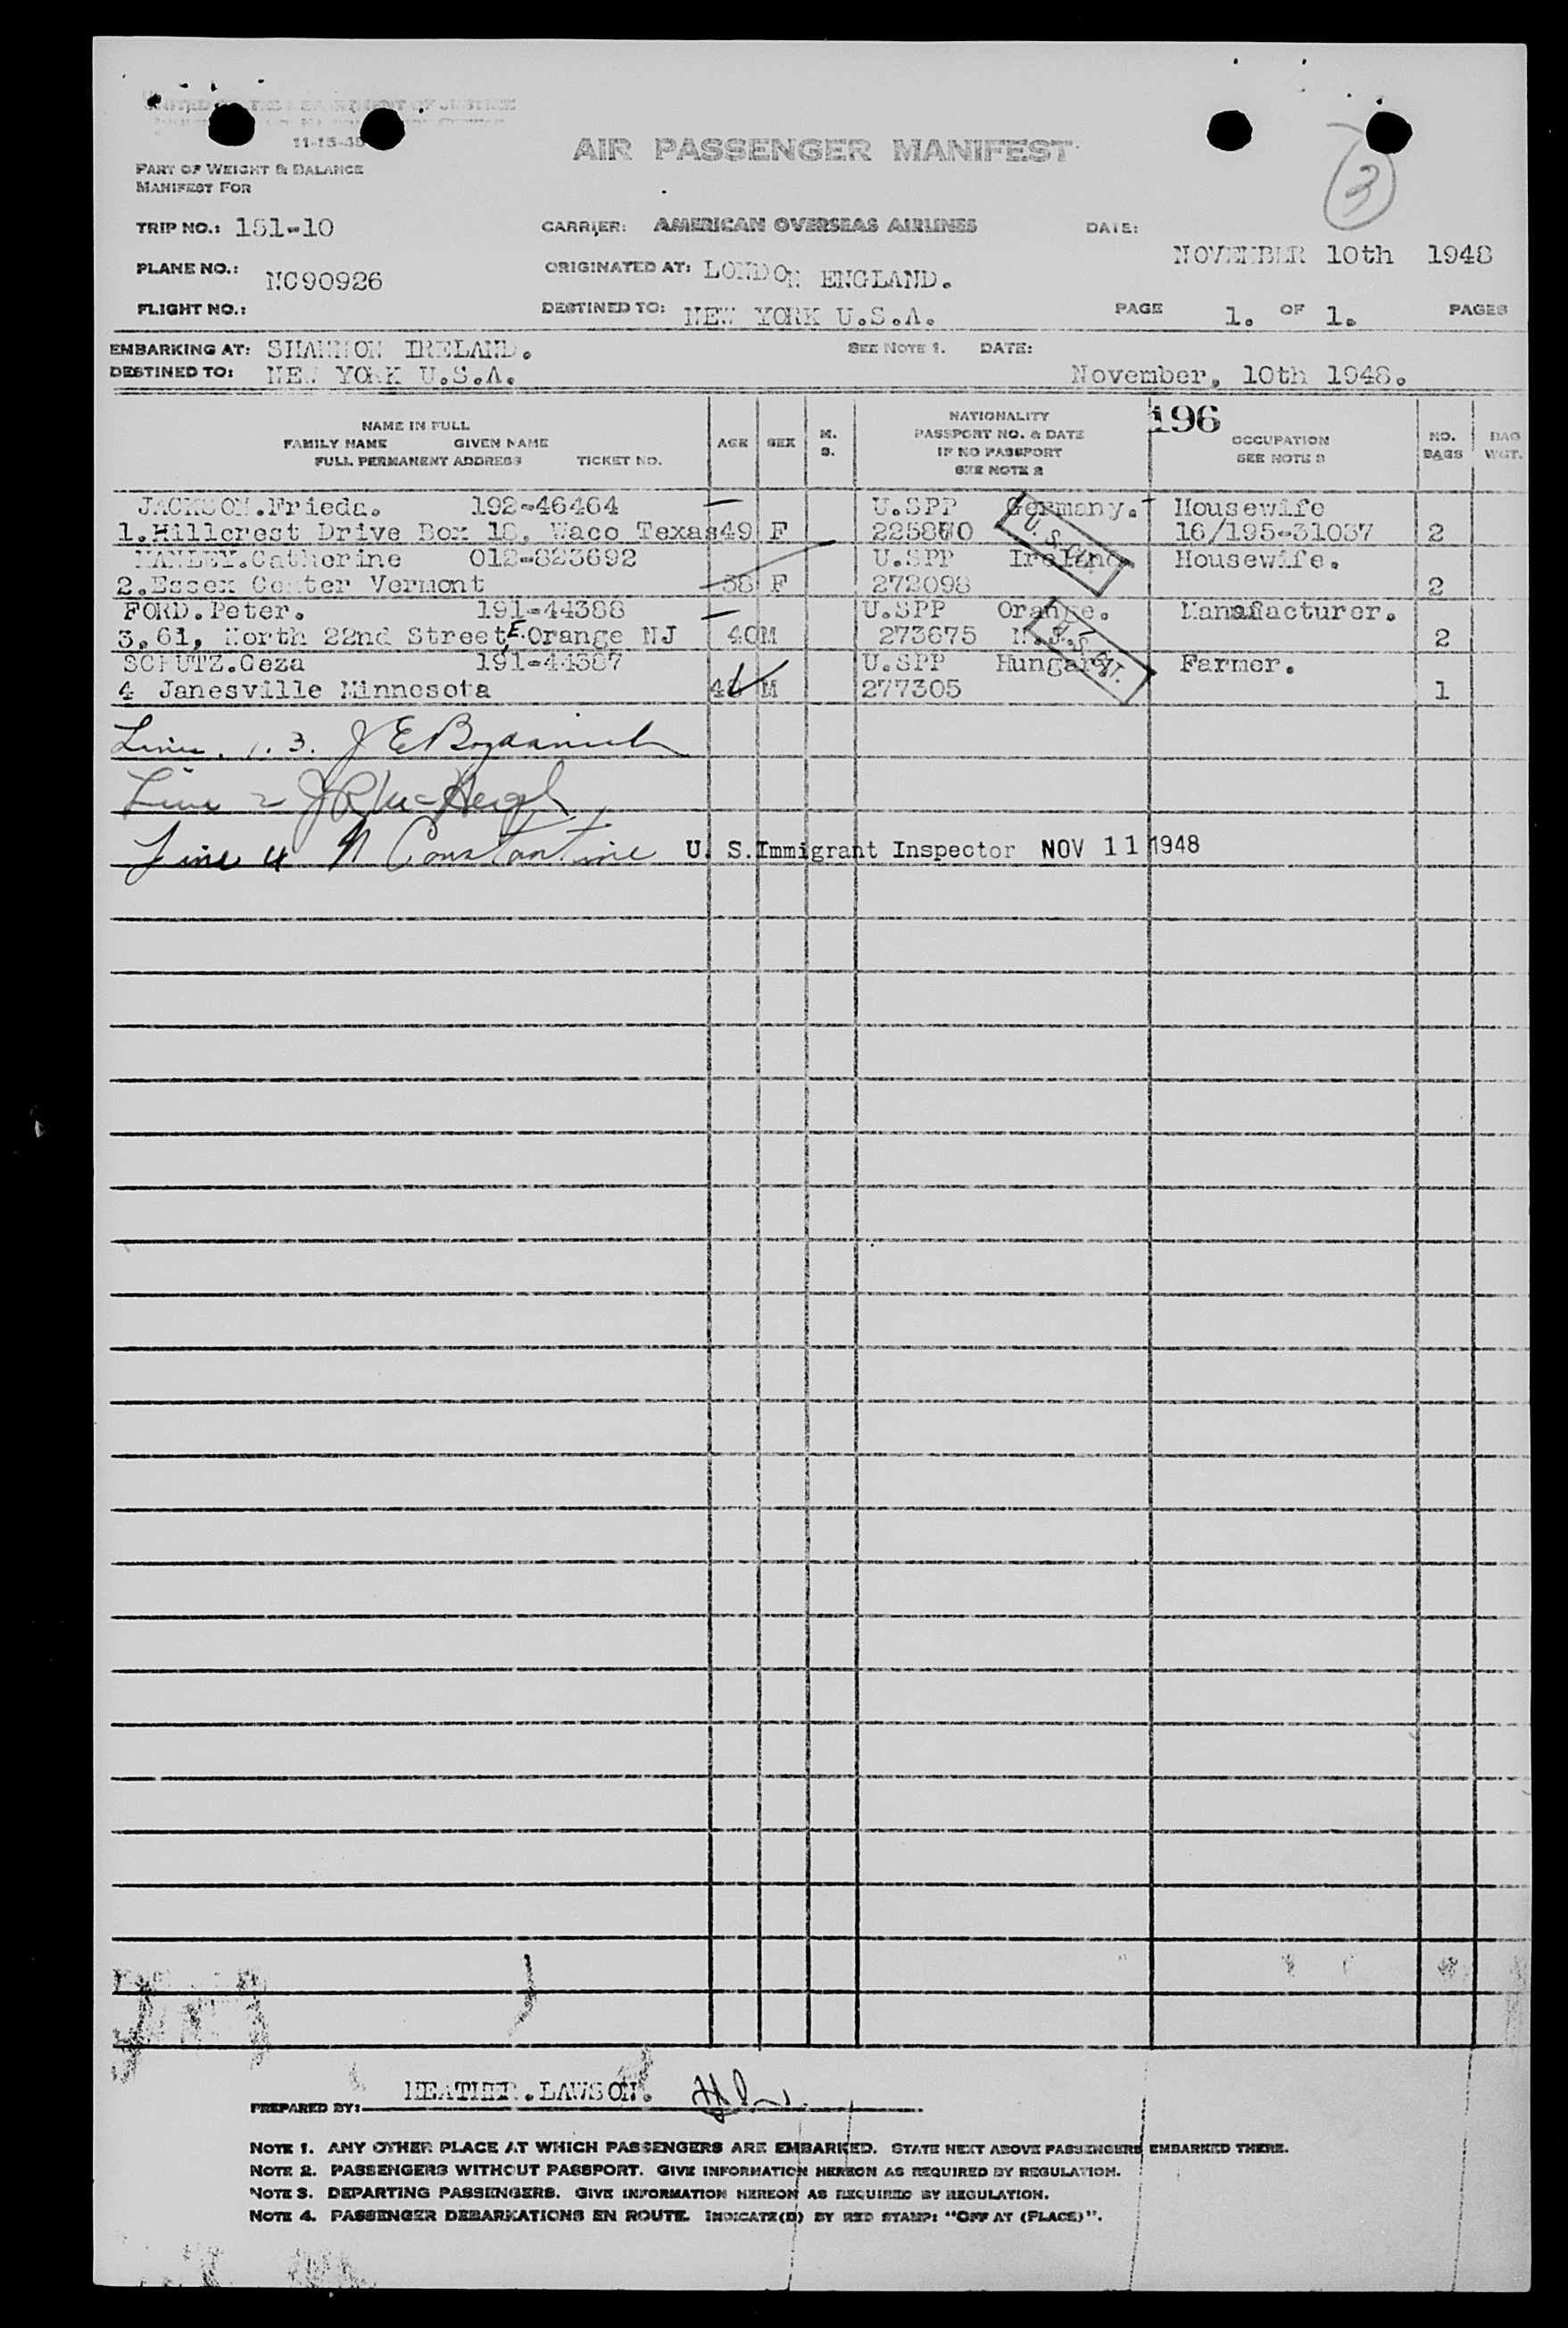 UNITED STATES DEPARTMENT OF JUSTICE
11-15-35
AIR PASSENGER MANIFEST
3
PART OF WEIGHT & BALANCE
MANIFEST FOR
TRIP NO.: 151-10 CARRIER: AMERICAN OVERSEAS AIRLINES DATE: NOVEMBER 10th 1948
PLANE NO.: NC90926 ORIGINATED AT: LONDON ENGLAND.
FLIGHT NO.: DESTINED TO: NEW YORK U.S.A. PAGE 1. OF 1. PAGES
EMBARKING AT: SHANNON IRELAND. SEE NOTE 1. DATE:
DESTINED TO: NEW YORK U.S.A. November, 10th 1948.
NAME IN FULL
FAMILY NAME GIVEN NAME
FULL PERMANENT ADDRESS TICKET NO.
AGE SEX M. S.
NATIONALITY
PASSPORT NO. & DATE
IF NO PASSPORT
SEE NOTE 2
196
OCCUPATION
SEE NOTE 3
NO. BAGS
BAG WGT.
JACKSON.Frieda. 192-46464 U.SPP Germany. Housewife
1.Hillcrest Drive Box 18, Waco Texas 49 F 16/195-31037 2
U. S. CIT.
MANLEY.Catherine 012-823692 U.SPP Ireland. Housewife.
2.Essex Center Vermont 38 F 272098 2
FORD.Peter. 191-44388 U.SPP Orange. Manufacturer.
3.61, North 22nd Street, E. Orange NJ 40 M 273675 N.J. 2
U. S. CIT.
SCHUTZ.Geza 191-44387 U.SPP Hungary Farmer.
4 Janesville Minnesota M 277305 1
Lines 1. 3. J E
Line 2 J R
Line 4 N Constantine U. S. Immigrant Inspector NOV 11 1948
PREPARED BY: HEATHER.LAWSON.
NOTE 1. ANY OTHER PLACE AT WHICH PASSENGERS ARE EMBARKED. STATE NEXT ABOVE PASSENGERS EMBARKED THERE.
NOTE 2. PASSENGERS WITHOUT PASSPORT. GIVE INFORMATION HEREON AS REQUIRED BY REGULATION.
NOTE 3. DEPARTING PASSENGERS. GIVE INFORMATION HEREON AS REQUIRED BY REGULATION.
NOTE 4. PASSENGER DEBARKATIONS EN ROUTE. INDICATE(D) BY RED STAMP: "OFF AT (PLACE)".